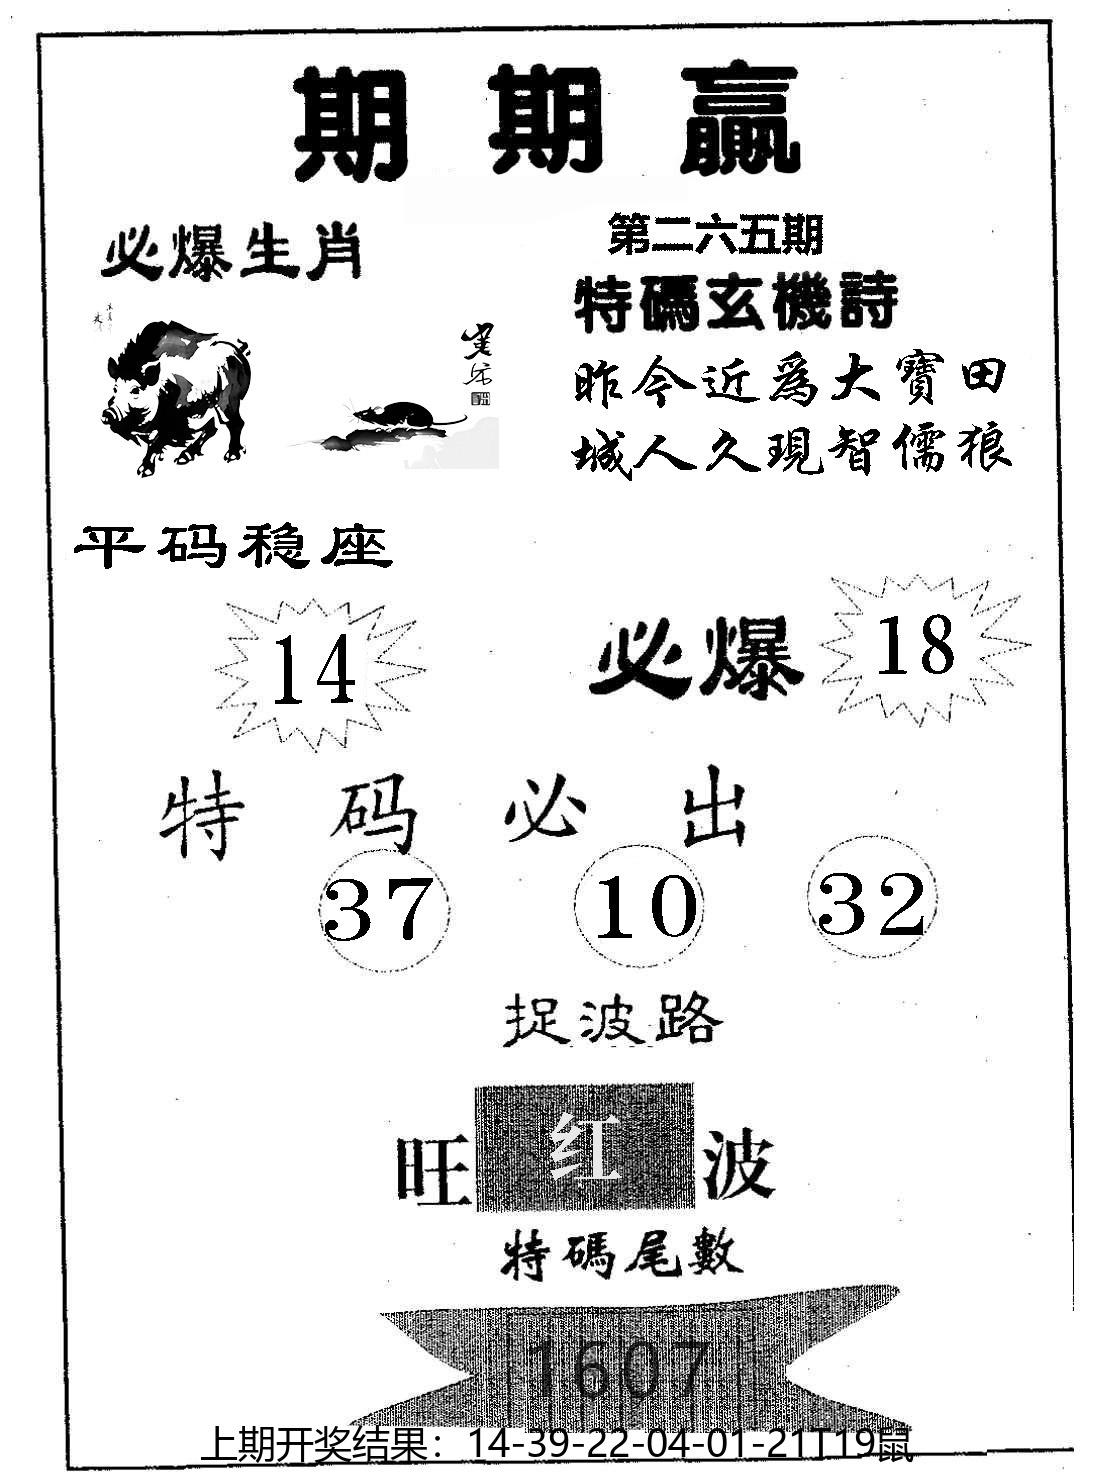 期期贏
必爆生肖
第二六五期
特碼玄機詩
昨今近爲大寶田
城人久現智儒狼
平码稳座
14
必爆
18
特码必出
37
10
32
捉波路
旺红波
特碼尾數
1607
上期开奖结果：14-39-22-04-01-21T19鼠